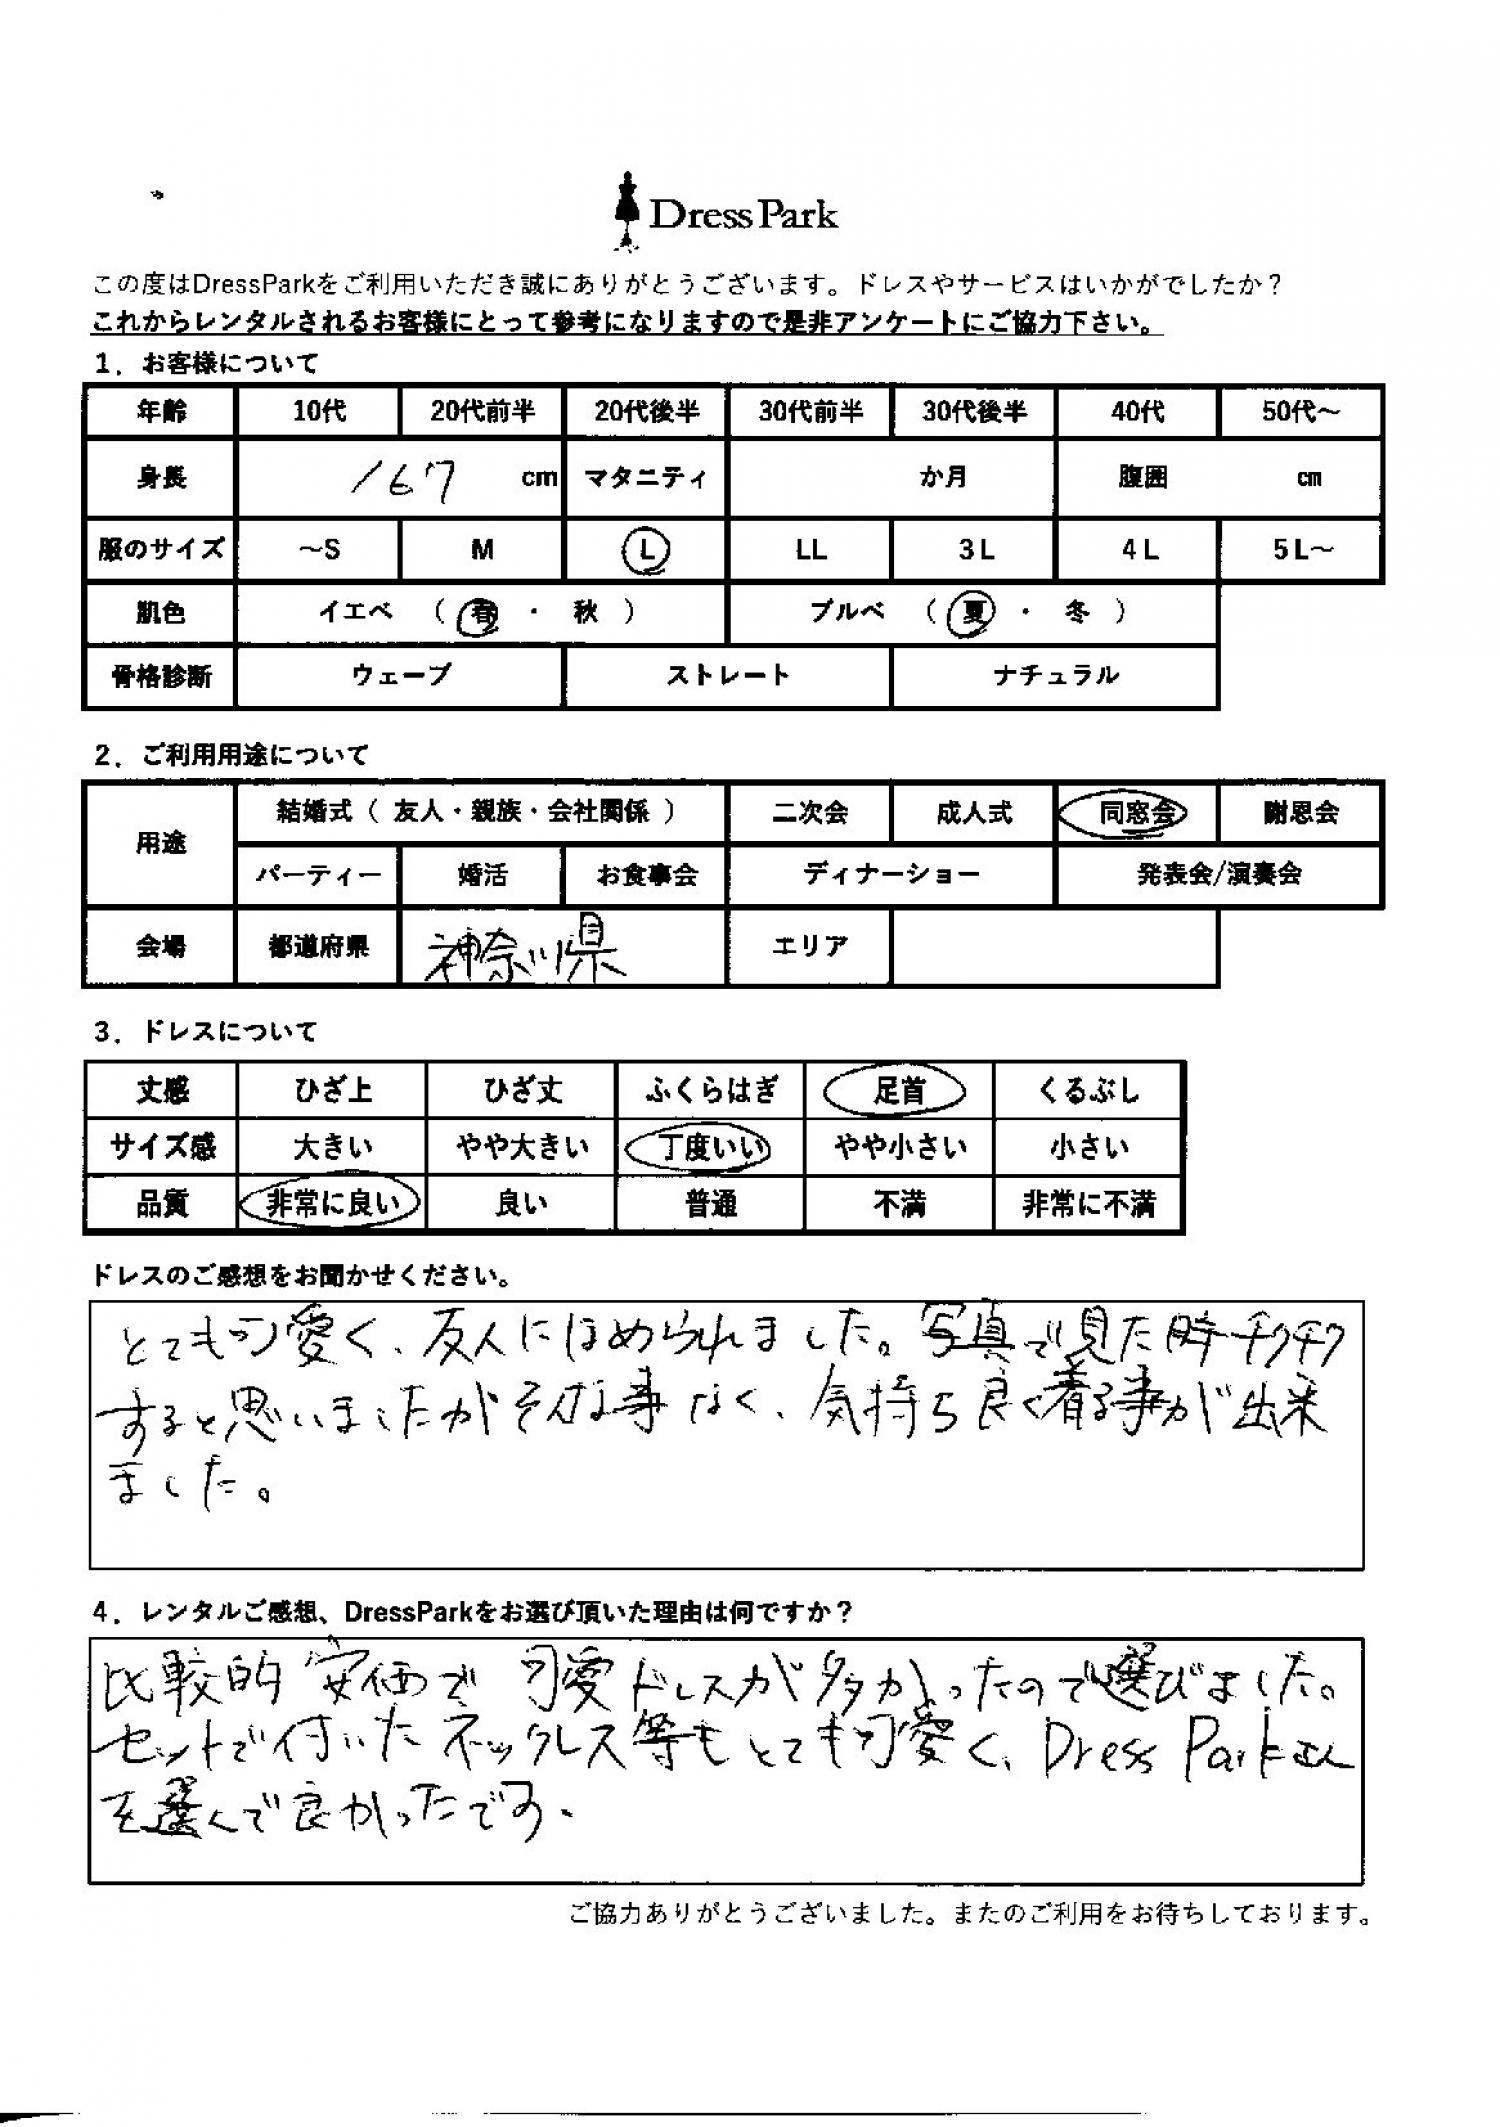 Dress Park
この度はDressParkをご利用いただき誠にありがとうございます。ドレスやサービスはいかがでしたか？
これからレンタルされるお客様にとって参考になりますので是非アンケートにご協力下さい。
1．お客様について
年齢 10代 20代前半 20代後半 30代前半 30代後半 40代 50代～
身長 167 cm マタニティ か月 腹囲 cm
服のサイズ ～S M L LL 3L 4L 5L～
肌色 イエベ （ 春 ・ 秋 ） ブルベ （ 夏 ・ 冬 ）
骨格診断 ウェーブ ストレート ナチュラル
2．ご利用用途について
用途 結婚式（ 友人・親族・会社関係 ） 二次会 成人式 同窓会 謝恩会
パーティー 婚活 お食事会 ディナーショー 発表会/演奏会
会場 都道府県 神奈川県 エリア
3．ドレスについて
丈感 ひざ上 ひざ丈 ふくらはぎ 足首 くるぶし
サイズ感 大きい やや大きい 丁度いい やや小さい 小さい
品質 非常に良い 良い 普通 不満 非常に不満
ドレスのご感想をお聞かせください。
とても可愛く、友人にほめられました。写真で見た時チクチク
すると思いましたがそんな事なく、気持ち良く着る事が出来
ました。
4．レンタルご感想、DressParkをお選び頂いた理由は何ですか？
比較的安価で可愛ドレスが多かったので選びました。
セットで付いたネックレス等もとても可愛く、Dress Parkさん
を選んで良かったです。
ご協力ありがとうございました。またのご利用をお待ちしております。